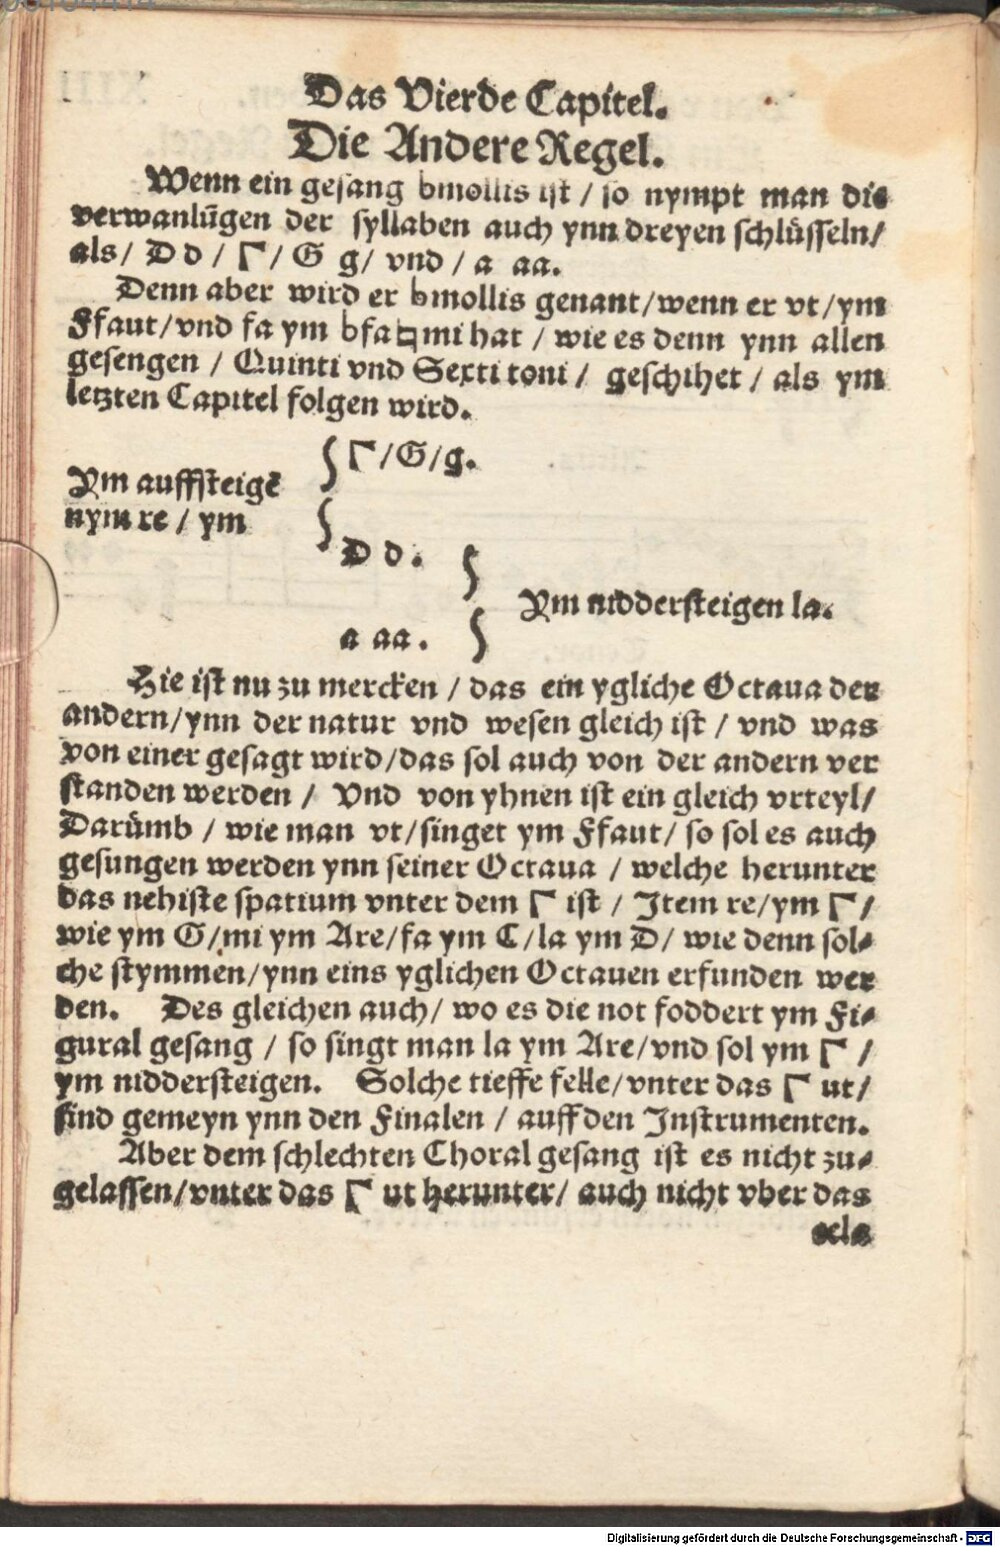 Das Vierde Capitel.
Die Andere Regel.
Wenn ein gesang bmollis ist / so nympt man die
verwanlūgen der syllaben auch ynn dreyen schlüsseln/
als/ D d / Γ / G g/ vnd / a aa.
Denn aber wird er bmollis genant/wenn er vt/ym
Ffaut/vnd fa ym bfa♮mi hat / wie es denn ynn allen
gesengen / Quinti vnd Sexti toni / geschihet / als ym
letzten Capitel folgen wird.
Γ/G/g.
Ym auffsteigē
nym re / ym
D d.
Ym niddersteigen la.
a aa.
Hie ist nu zu mercken / das ein ygliche Octaua der
andern/ynn der natur vnd wesen gleich ist / vnd was
von einer gesagt wird/das sol auch von der andern ver
standen werden / Vnd von yhnen ist ein gleich vrteyl/
Darümb / wie man vt/singet ym Ffaut/ so sol es auch
gesungen werden ynn seiner Octaua / welche herunter
das nehiste spatium vnter dem Γ ist / Item re/ym Γ/
wie ym G/mi ym Are/fa ym C/la ym D/ wie denn sol-
che stymmen/ynn eins yglichen Octauen erfunden wer
den. Des gleichen auch/ wo es die not foddert ym Fi-
gural gesang / so singt man la ym Are/vnd sol ym Γ /
ym niddersteigen. Solche tieffe felle/vnter das Γ ut/
sind gemeyn ynn den Finalen / auff den Instrumenten.
Aber dem schlechten Choral gesang ist es nicht zu-
gelassen/vnter das Γ ut herunter/ auch nicht vber das
Digitalisierung gefördert durch die Deutsche Forschungsgemeinschaft - DFG